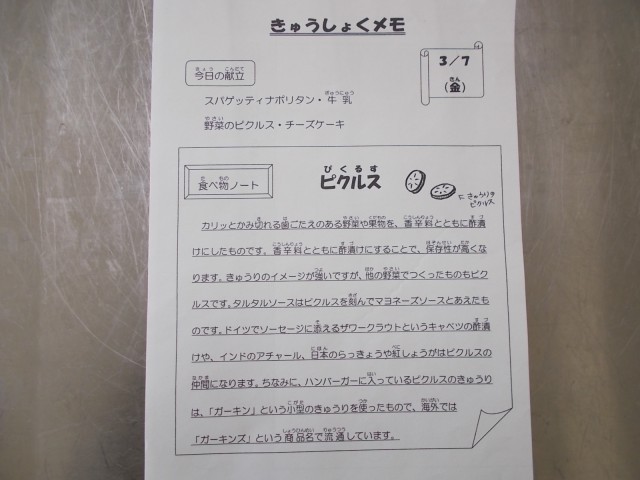 きゅうしょくメモ
3/7
(金)
今日の献立
スパゲッティナポリタン・牛乳
野菜のピクルス・チーズケーキ
食べ物ノート
ぴくるす
ピクルス
きゅうりの
ピクルス
カリッとかみ切れる歯ごたえのある野菜や果物を、香辛料とともに酢漬
けにしたものです。香辛料とともに酢漬けにすることで、保存性が高くな
ります。きゅうりのイメージが強いですが、他の野菜でつくったものもピク
ルスです。タルタルソースはピクルスを刻んでマヨネーズソースとあえたも
のです。ドイツでソーセージに添えるザワークラウトというキャベツの酢漬
けや、インドのアチャール、日本のらっきょうや紅しょうがはピクルスの
仲間になります。ちなみに、ハンバーガーに入っているピクルスのきゅうり
は、「ガーキン」という小型のきゅうりを使ったもので、海外では
「ガーキンズ」という商品名で流通しています。